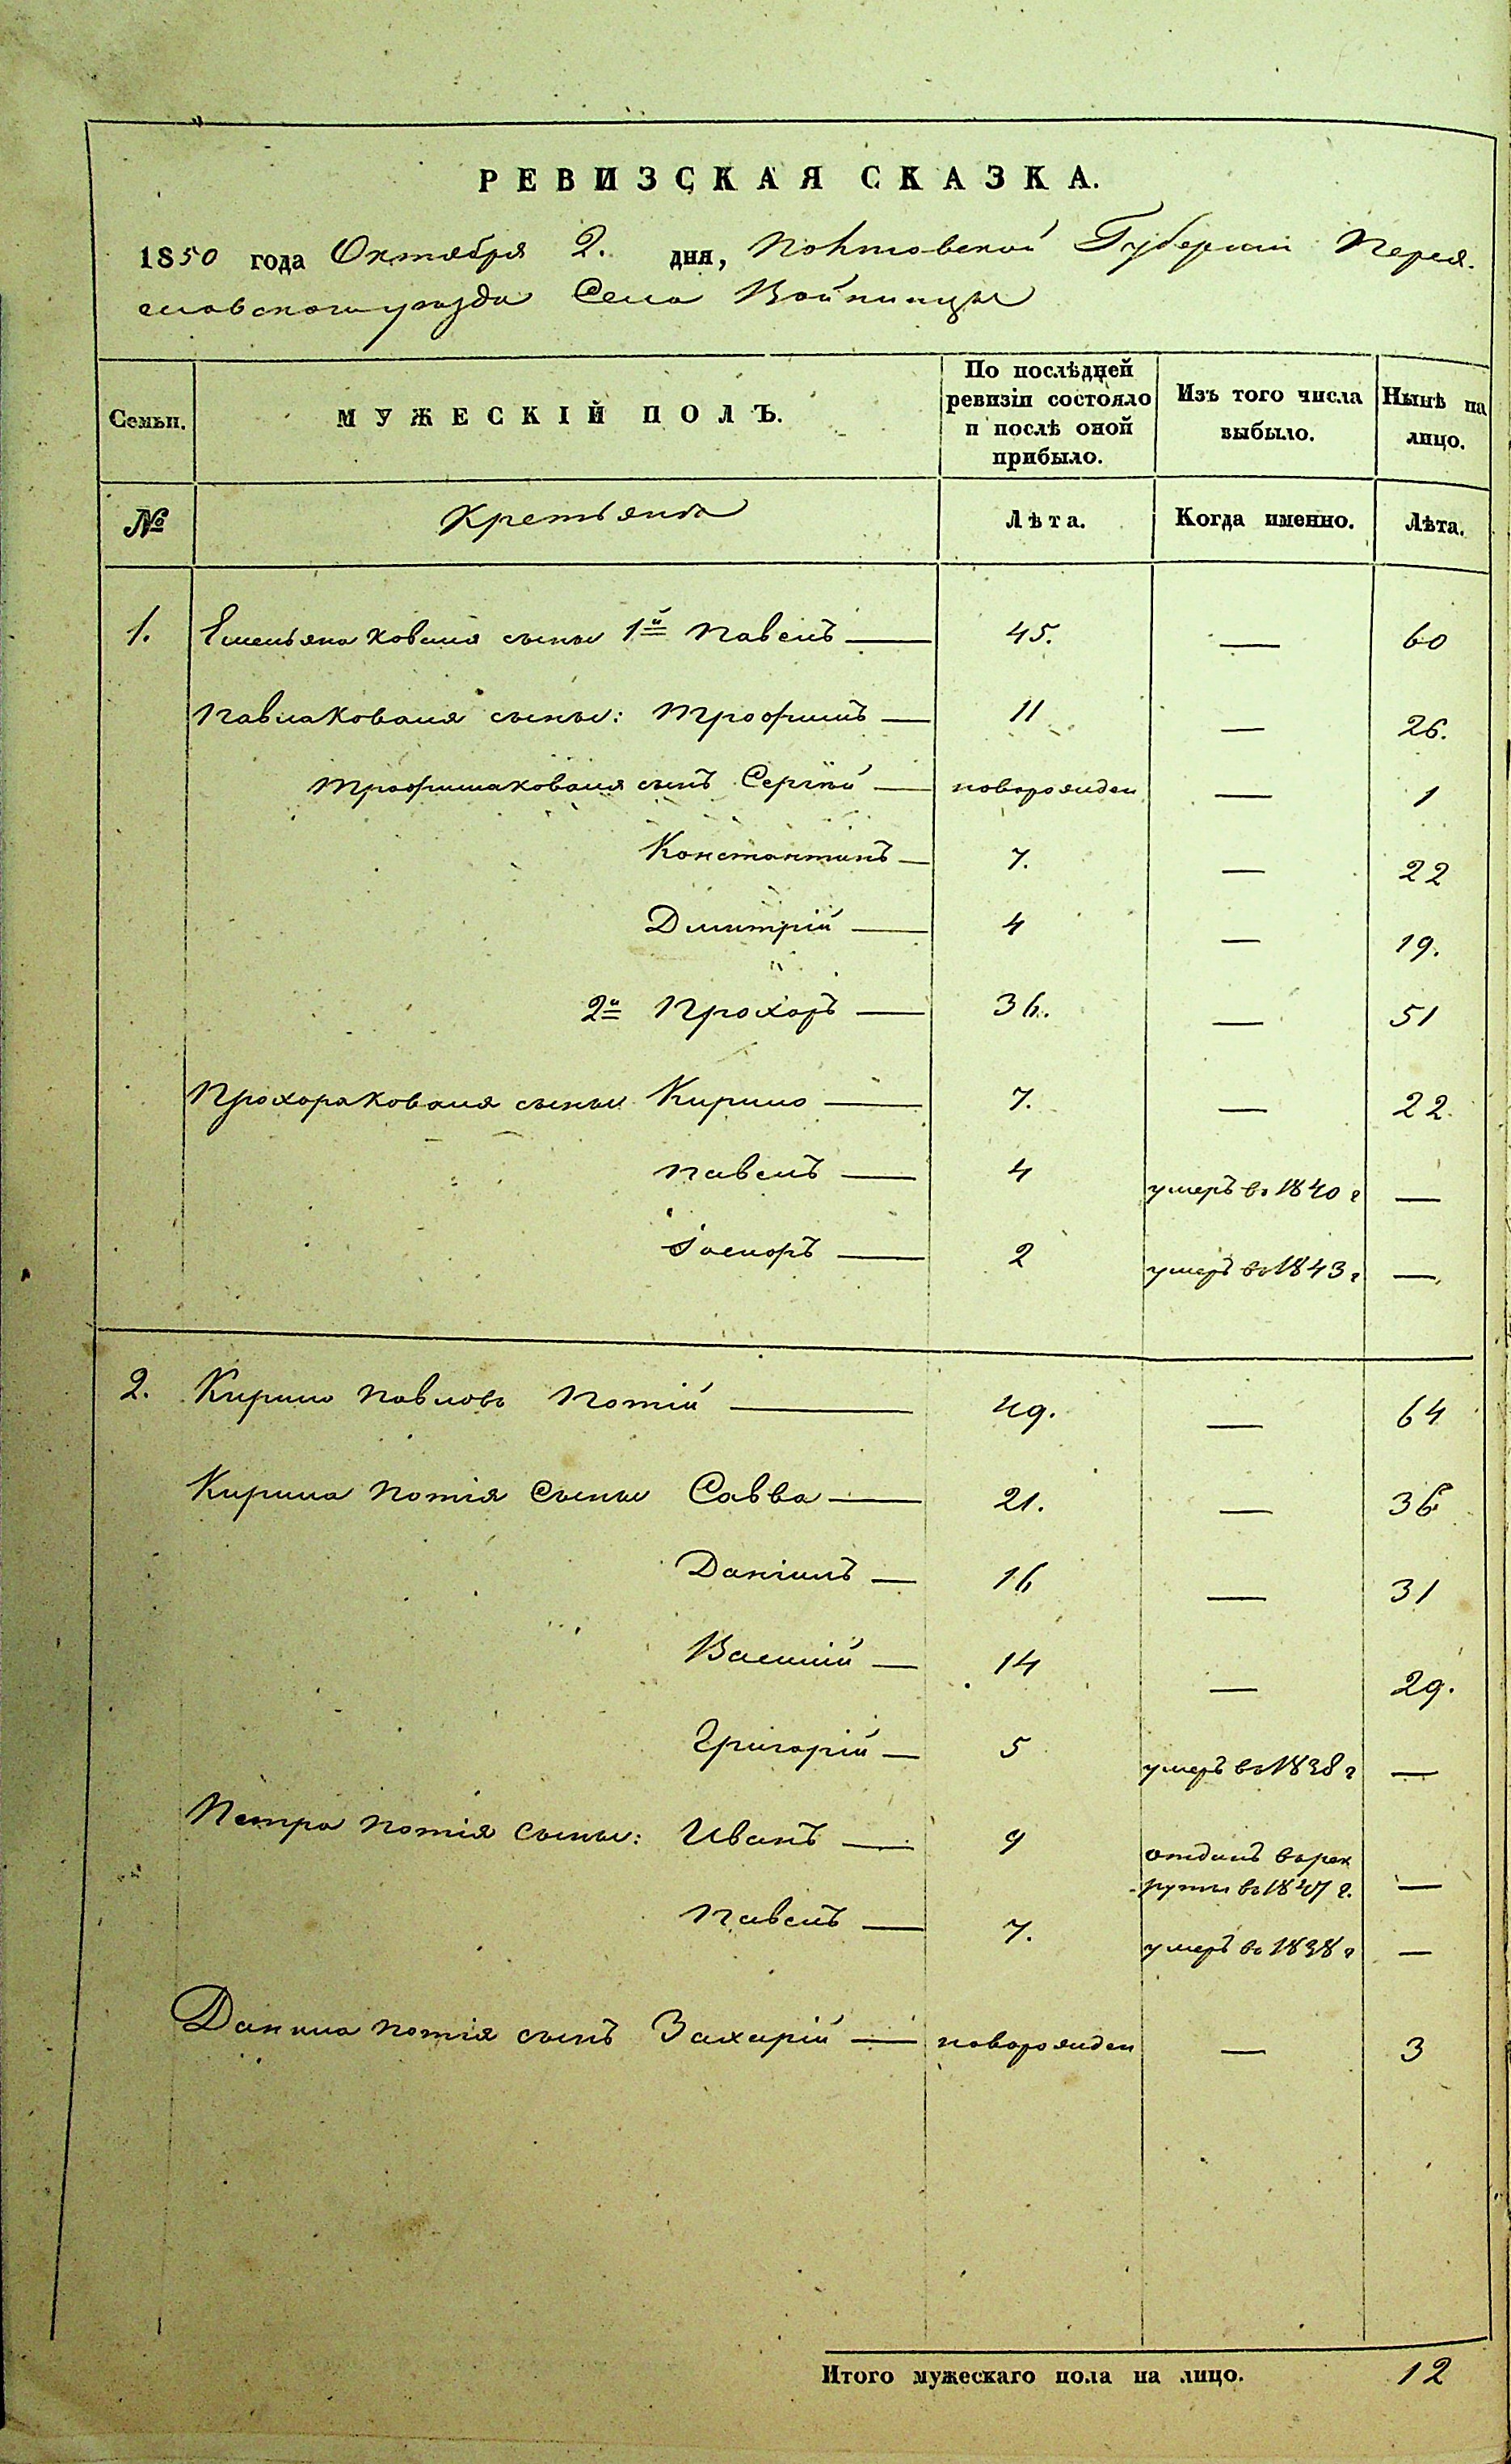 РЕВИЗСКАЯ СКАЗКА.
1850 года Октября 2. дня, Полтовской Губернии Перея-
словского уезда Села Войтинцы
Семьи.
МУЖЕСКІЙ ПОЛЪ.
По послѣдней
ревизіи состояло
и послѣ оной
прибыло.
Изъ того числа
выбыло.
Нынѣ на
лицо.
№
Лѣта.
Когда именно.
Лѣта.
1. Емельяна Коваля сыны 1й Павелъ — 45. — 60
Павла Коваля сыны: Трофимъ — 11 — 26.
Трофима Коваля сынъ Сергѣй — новорожден — 1
Константинъ — 7. — 22
Дмитрій — 4 — 19.
2й Прохоръ — 36. — 51
Прохора Коваля сыны Кирило — 7. — 22
Павелъ — 4 умеръ въ 1840 г —
— 2 умеръ въ 1843 г —
2. Кирило Павловъ Потій — 49. — 64
Кирила Потія Сыны Савва — 21. — 36
Даніилъ — 16 — 31
Василій — 14 — 29.
Григорій — 5 умеръ въ 1838 г —
Петра Потія Сыны: Иванъ — 9 отданъ в рек
руты в 1847 г. —
Павелъ — 7. умеръ въ 1838 г —
Данила Потія сынъ Захарій — новорожден — 3
Итого мужескаго пола на лицо. 12